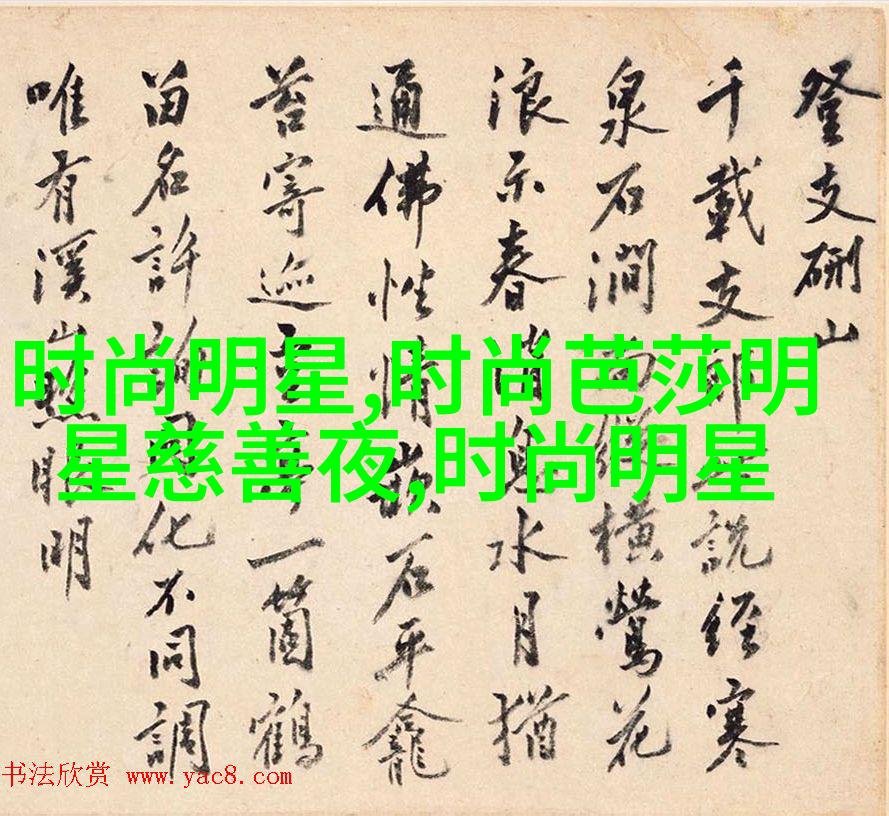 登支硎山
千載支郎
說經寒
泉石澗
縱橫鶯花
浪示春消息水月猶
通佛性情
石平龕
苔寄
一箇鶴
留名許詢
化不同調
唯有溪山照眼明
时尚明星,时尚芭莎明
星慈善夜,时尚明星
书法欣赏 www.yac8.com